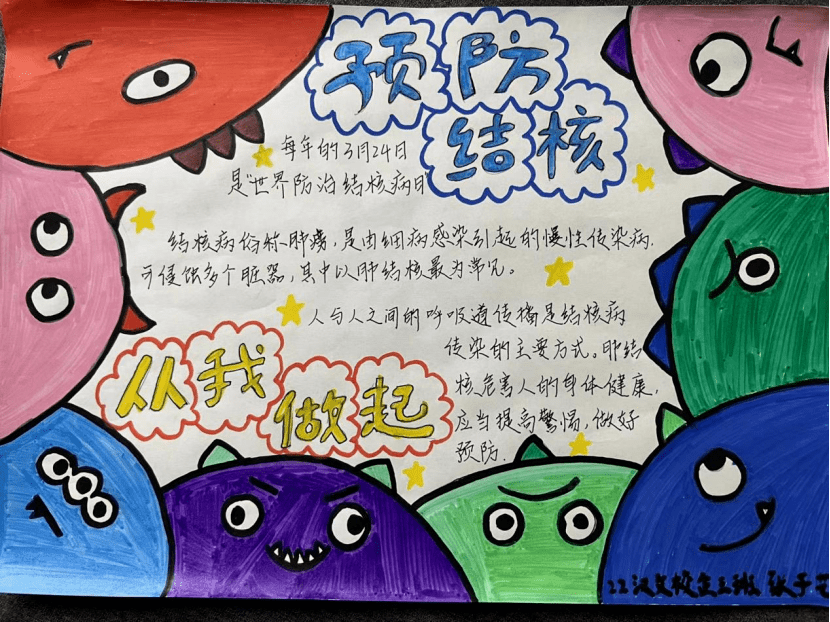 预防
结核
每年的3月24日
是"世界防治结核病日
结核病俗称肺痨，是由细病感染引起的慢性传染病.
可侵蚀多个脏器，其中以肺结核最为常见。
人与人之间的呼吸道传播是结核病
传染的主要方式。肺结
核危害人的身体健康，
应当提高警惕，做好
预防.
从我
做起
22